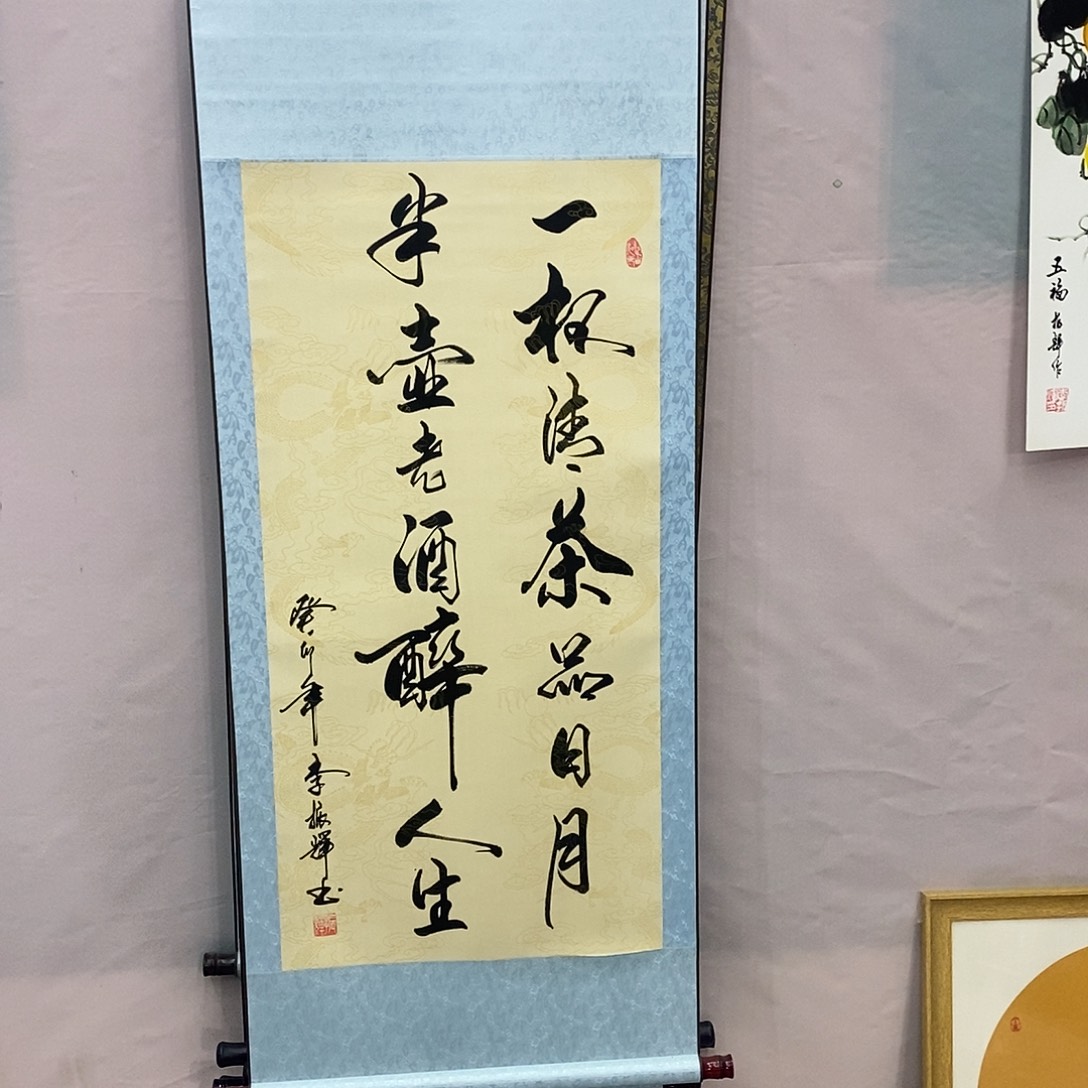 一杯清茶品日月
半壶老酒醉人生
癸卯年 李振辉书
五福 振辉作